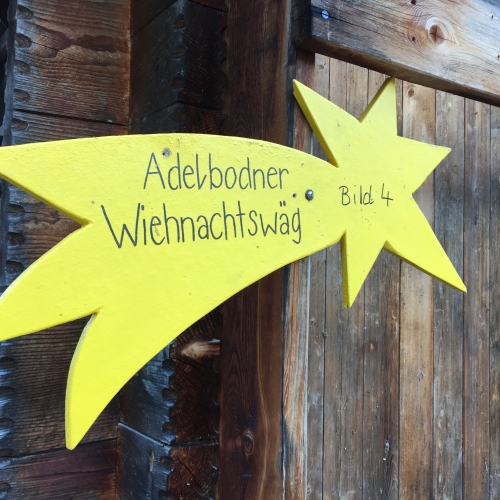 Adelbodner
Wiehnachtswäg
Bild 4